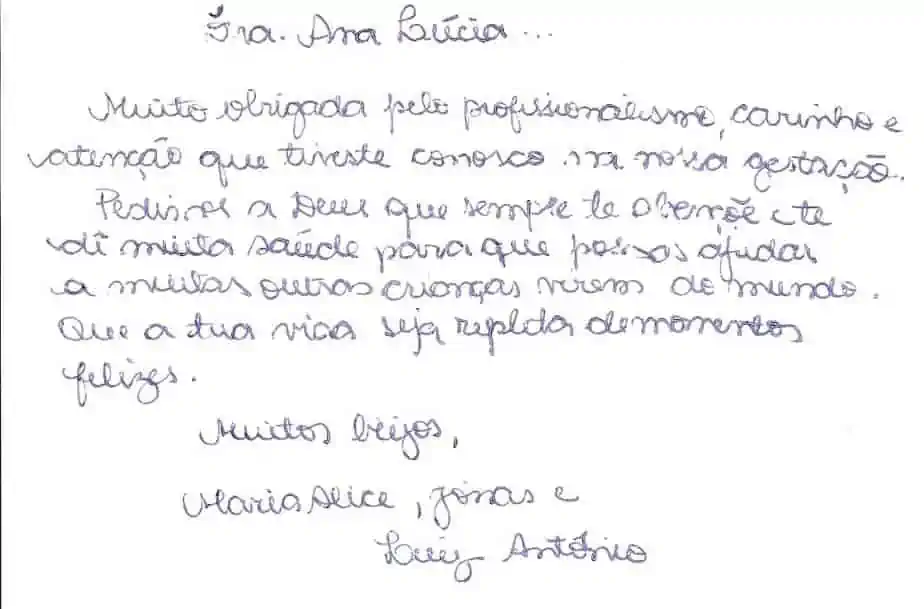 Sra. Ana Lúcia...
Muito obrigada pelo profissionalismo, carinho e
atenção que tiveste conosco na nossa gestação.
Pedimos a Deus que sempre te abençõe e te
dê muita saúde para que possas ajudar
a muitas outras crianças virem ao mundo.
Que a tua vida seja repleta de momentos
felizes.
Muitos beijos,
Maria Alice, Jonas e
Luiz Antônio